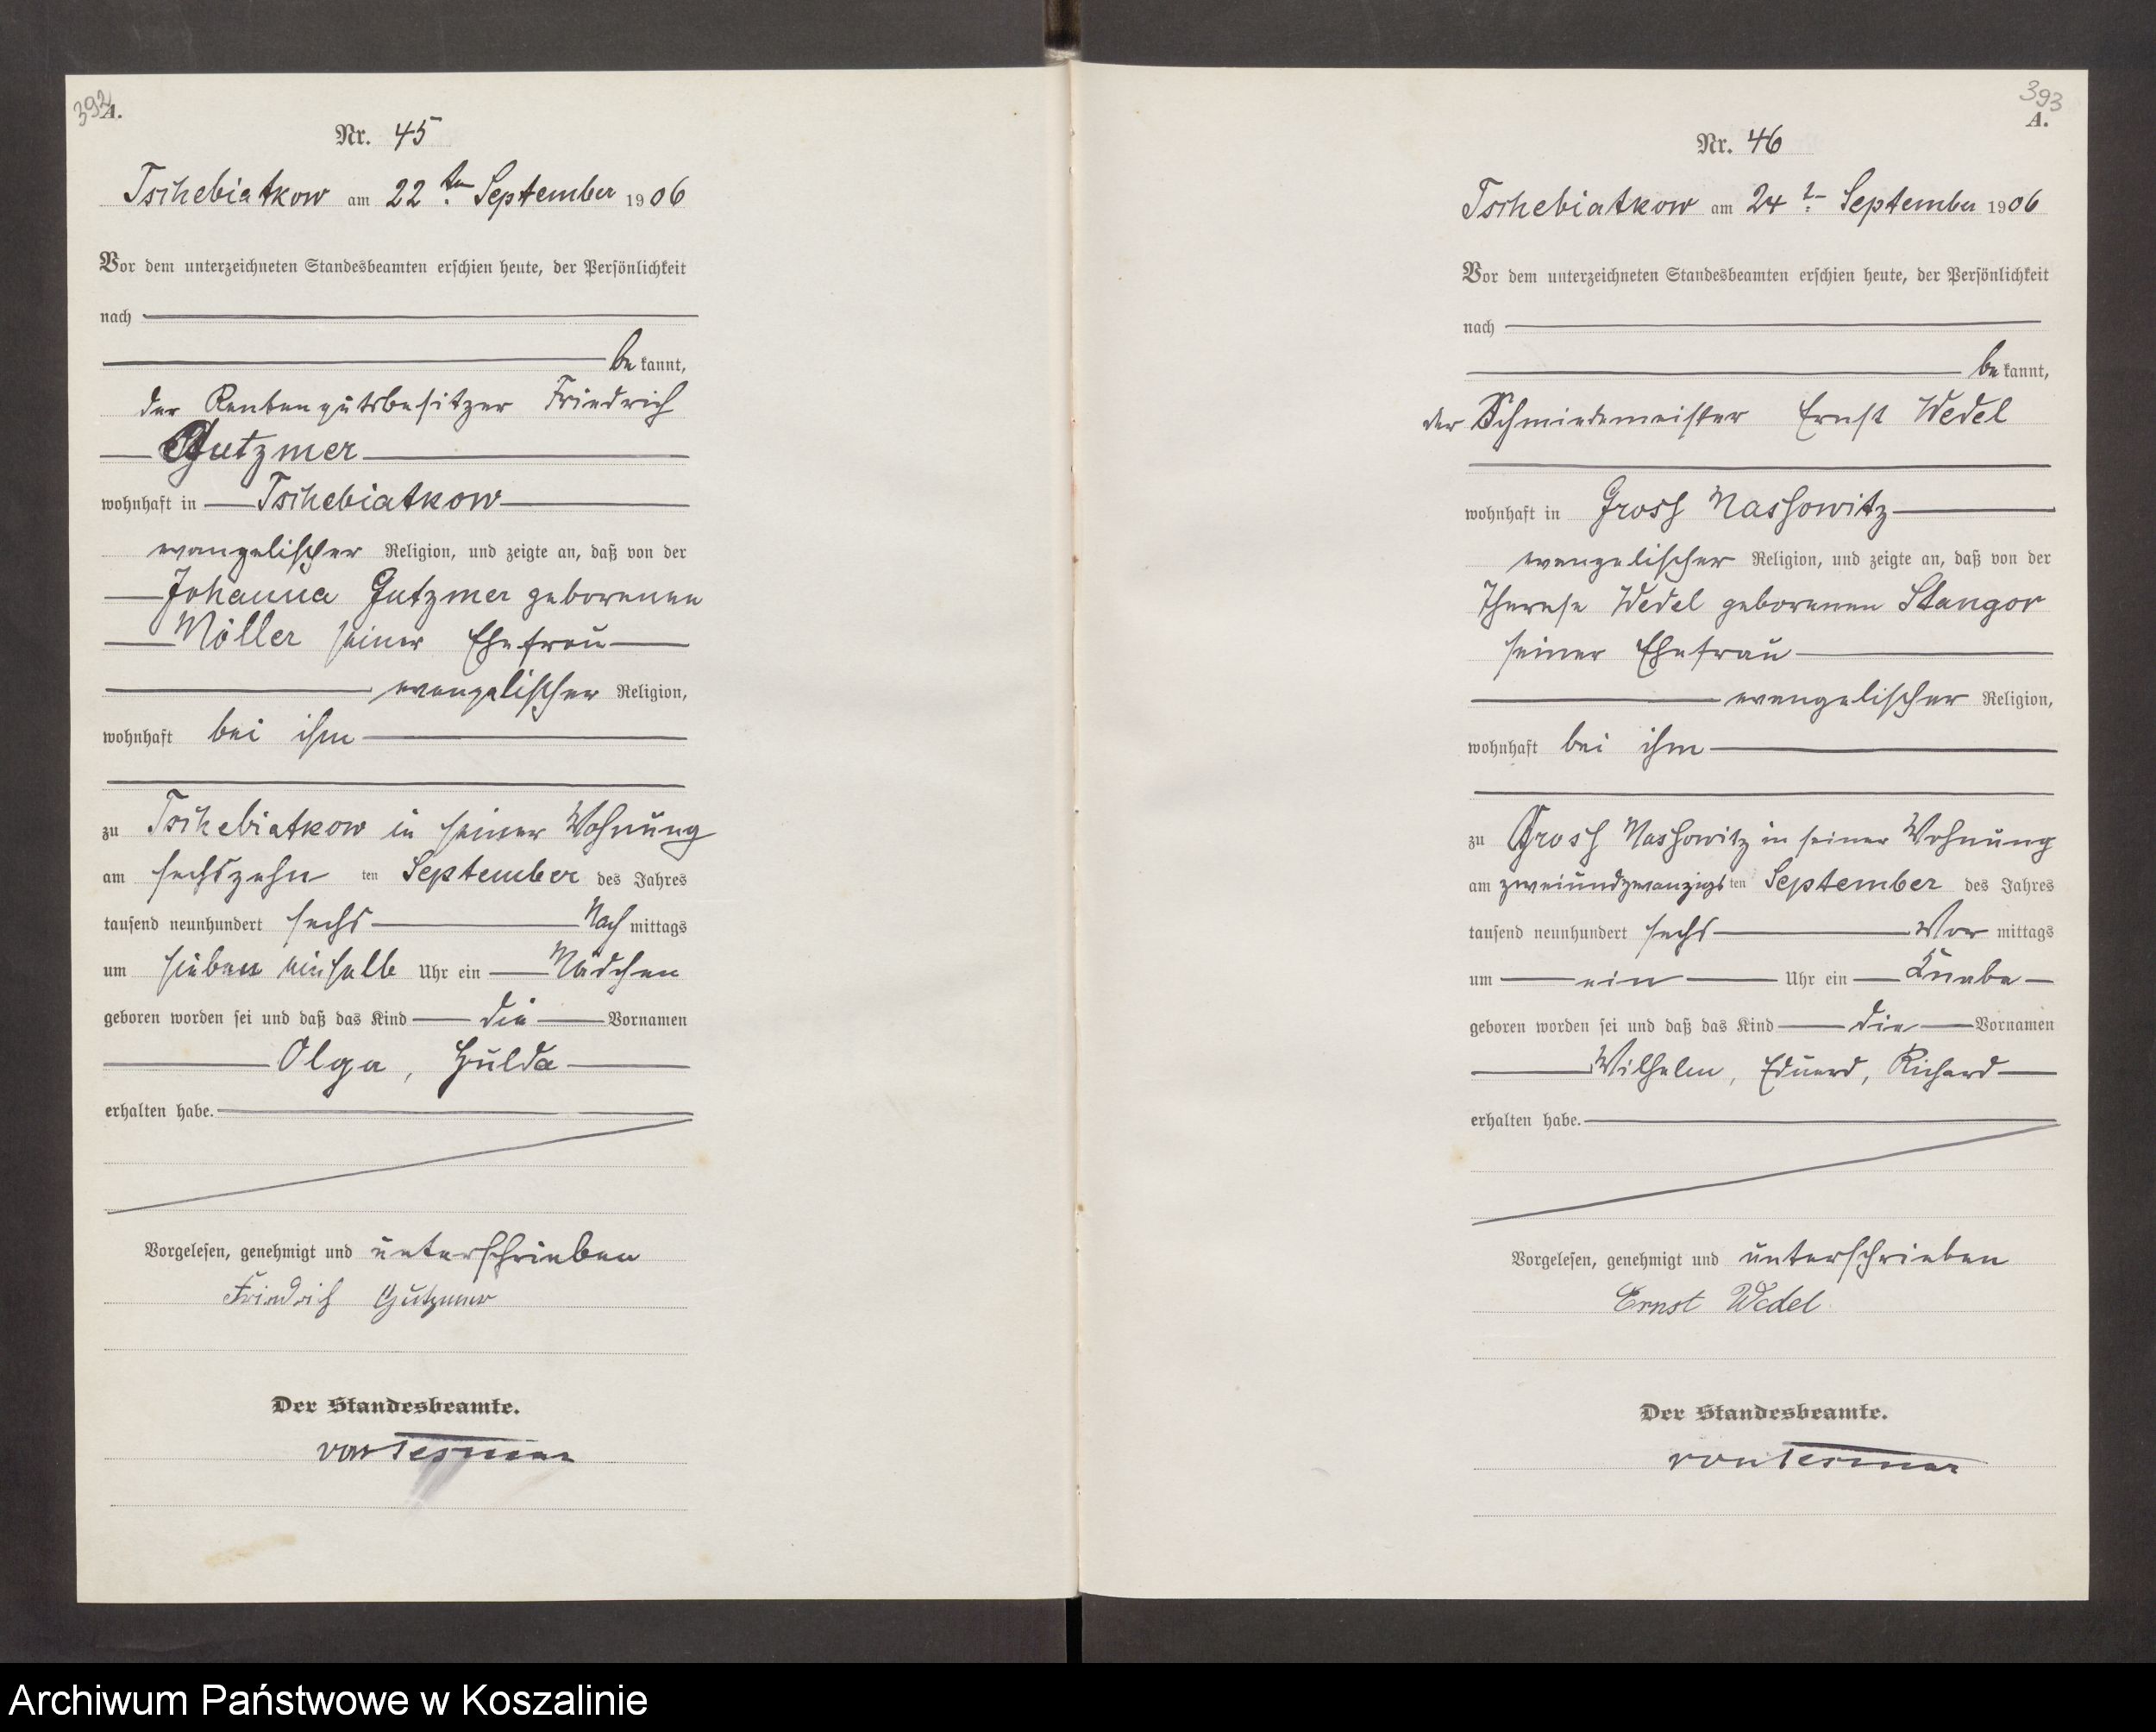 392
A.
Nr. 45
Tschebiatkow am 22ten September 1906
Vor dem unterzeichneten Standesbeamten erschien heute, der Persönlichkeit
nach
bekannt,
der Rentengutsbesitzer Friedrich
Gutzmer
wohnhaft in Tschebiatkow
evangelischer Religion, und zeigte an, daß von der
Johanna Gutzmer geborenen
Möller seiner Ehefrau
evangelischer Religion,
wohnhaft bei ihm
zu Tschebiatkow in seiner Wohnung
am sechszehn ten September des Jahres
tausend neunhundert sechs Nachmittags
um sieben einhalb Uhr ein Mädchen
geboren worden sei und daß das Kind die Vornamen
Olga, Hulda
erhalten habe.
Vorgelesen, genehmigt und unterschrieben
Friedrich Gutzmer
Der Standesbeamte.
von Tesmar
393
A.
Nr. 46
Tschebiatkow am 24 September 1906
Vor dem unterzeichneten Standesbeamten erschien heute, der Persönlichkeit
nach
bekannt,
der Schmiedemeister Ernst Wedel
wohnhaft in Gross Massowitz
evangelischer Religion, und zeigte an, daß von der
Therese Wedel geborenen Stangor
seiner Ehefrau
evangelischer Religion,
wohnhaft bei ihm
zu Gross Massowitz in seiner Wohnung
am zweiundzwanzigsten September des Jahres
tausend neunhundert sechs Vormittags
um ein Uhr ein Knabe
geboren worden sei und daß das Kind die Vornamen
Wilhelm, Eduard, Richard
erhalten habe.
Vorgelesen, genehmigt und unterschrieben
Ernst Wedel
Der Standesbeamte.
von Tesmar
Archiwum Państwowe w Koszalinie